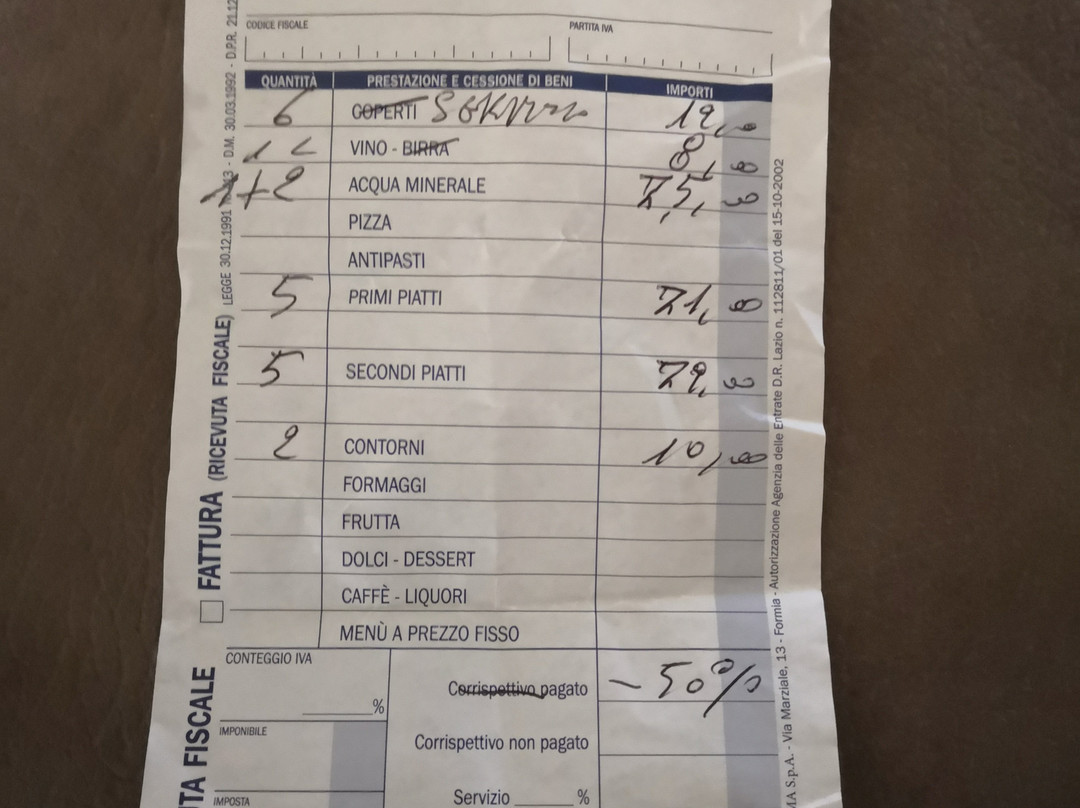 CODICE FISCALE PARTITA IVA
QUANTITÀ PRESTAZIONE E CESSIONE DI BENI IMPORTI
6 COPERTI 12,00
VINO - BIRRA 8,00
1+2 ACQUA MINERALE
PIZZA
ANTIPASTI
5 PRIMI PIATTI 71,00
5 SECONDI PIATTI 79,00
2 CONTORNI 10,00
FORMAGGI
FRUTTA
DOLCI - DESSERT
CAFFÈ - LIQUORI
MENÙ A PREZZO FISSO
CONTEGGIO IVA
Corrispettivo pagato - 50%
%
IMPONIBILE
Corrispettivo non pagato
IMPOSTA
Servizio %
FATTURA (RICEVUTA FISCALE) LEGGE 30.12.1991 - D.M. 30.03.1992 - D.P.R. 21.12
FISCALE
S.p.A. - Via Marziale, 13 - Formia - Autorizzazione Agenzia delle Entrate D.R. Lazio n. 112811/01 del 15-10-2002